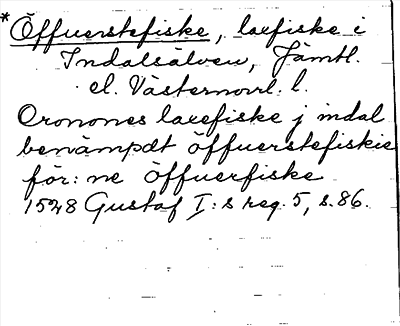 *Öffuerstefiske, laxfiske i
Indalsälven, Jämtl.
el. Västernorrl. l.
Cronones laxefiske j indal
benämpdt öffuerstefiskie
for:ne öffuerfiske
1528 Gustaf I:s reg. 5, s. 86.